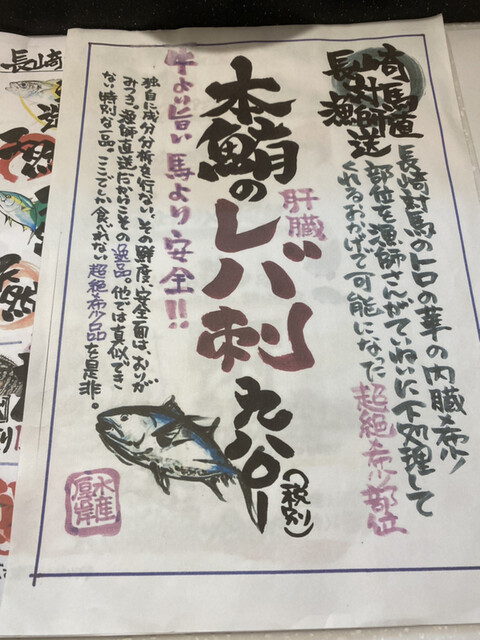 長崎対馬直
漁師送
長崎対馬のトロの華の内臓赤ノ
部位を漁師さんがていねいに下処理して
くれるおかげで可能になった超絶希少部位
本鮪のレバ刺
肝臓
九八〇ー
(税別)
牛より旨い馬より安全!!
独自に成分分析を行ない、その鮮度、安全面は、おりが
みつき。漁師直送だからこその逸品。他では真似でき
ない特別な一品。ここでしか食べれない超絶希少品を是非。
厚岸
水産
長崎